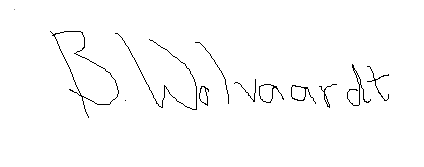 B. Wolvaardt